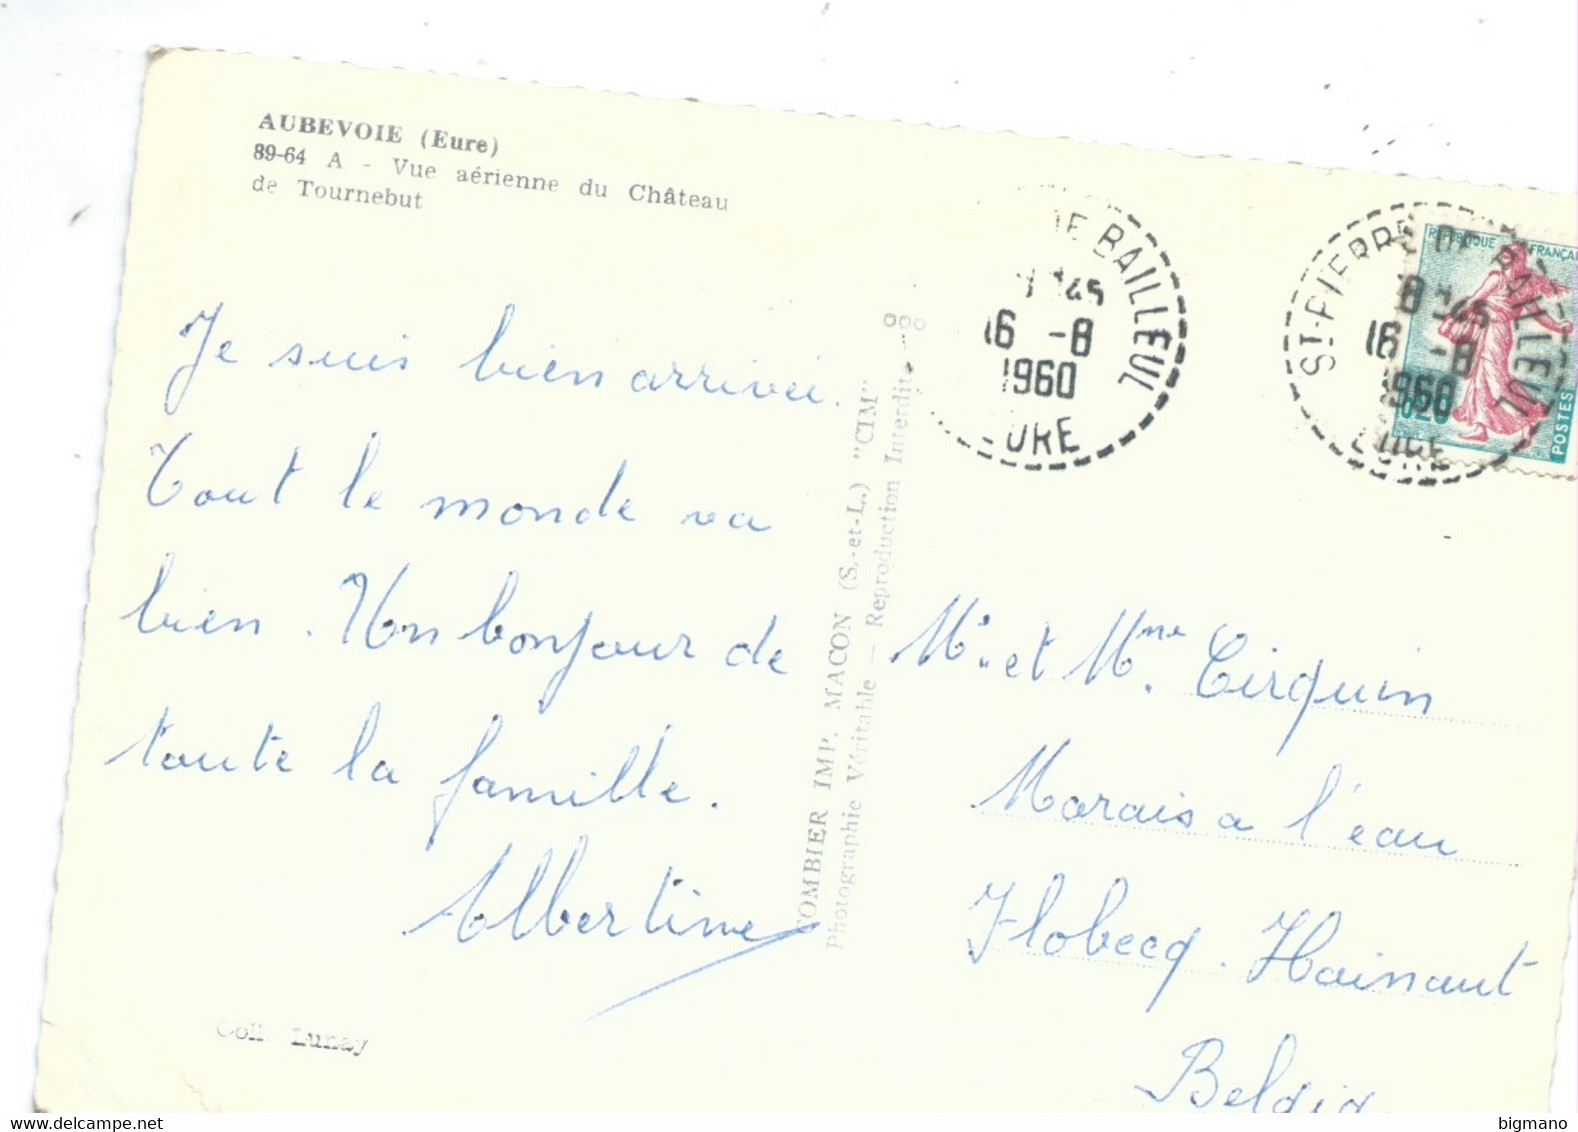 AUBEVOIE (Eure)
89-64 A - Vue aérienne du Château
de Tournebut
Je suis bien arrivée.
Tout le monde va
bien. Un bonjour de
toute la famille.
Albertine
Coll. Lunay
COMBIER IMP. MACON (S.-et-L.) "CIM"
Photographie Véritable - Reproduction Interdite
DE BAILLEUL
45
16 -8
1960
EURE
ST-PIERRE DE BAILLEUL
18 45
16 -8
1960
EURE
REPUBLIQUE FRANÇAI
0,20
POSTES
Mr. et Mme. Cirquin
Marais a l'eau
Flobecq. Hainaut
Belgiq
bigmano